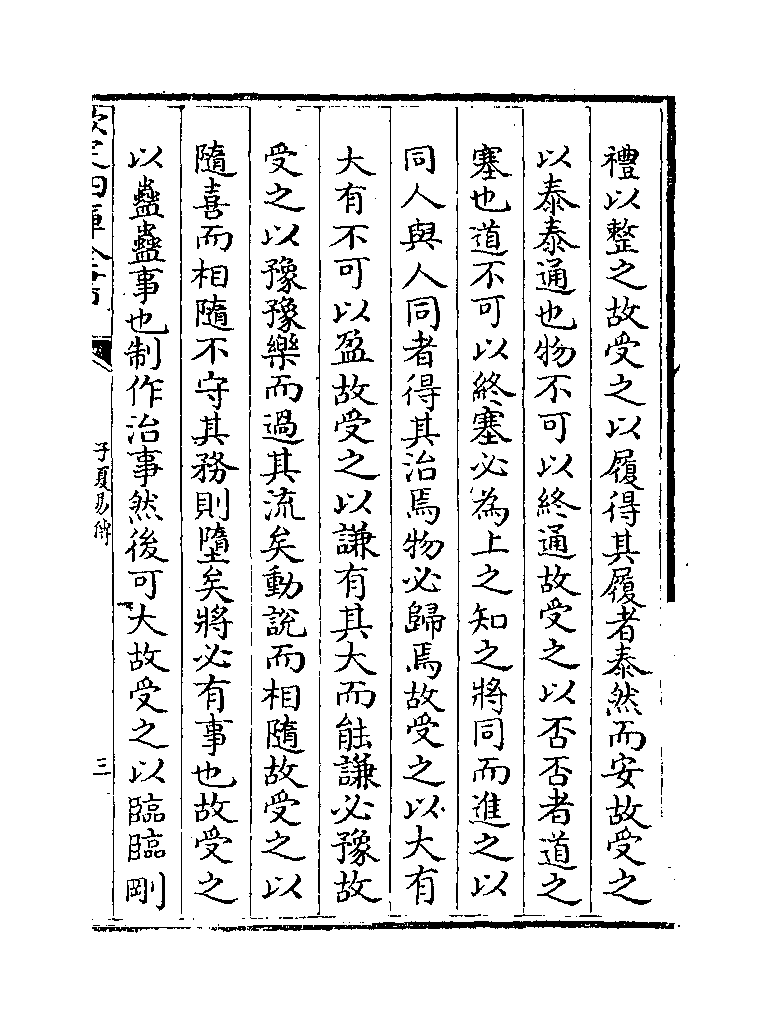 禮以整之故受之以履得其履者泰然而安故受之
以泰泰通也物不可以終通故受之以否否者道之
塞也道不可以終塞必為上之知之將同而進之以
同人與人同者得其治焉物必歸焉故受之以大有
大有不可以盈故受之以謙有其大而能謙必豫故
受之以豫豫樂而過其流矣動說而相隨故受之以
隨喜而相隨不守其務則墮矣將必有事也故受之
以蠱蠱事也制作治事然後可大故受之以臨臨剛
欽定四庫全書
子夏易傳
三